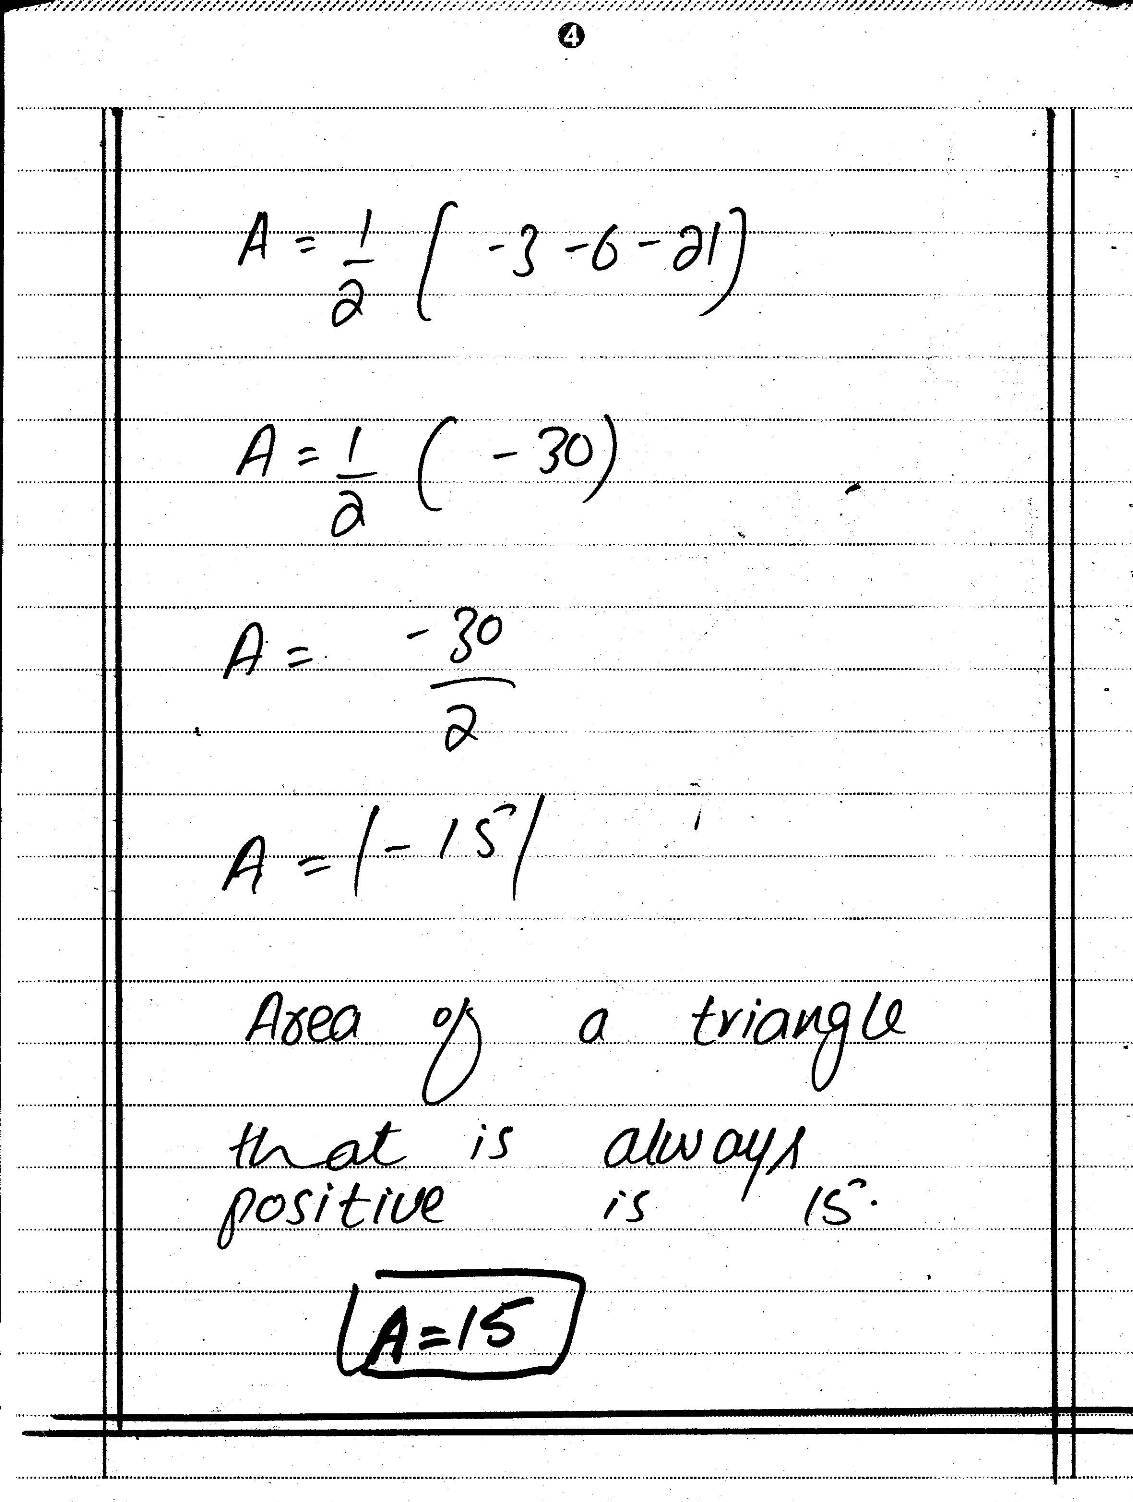 4
A = 1/2 ( -3 -6 -21)
A = 1/2 ( -30)
A = -30/2
A = |-15|
Area of a triangle
that is always
positive is 15.
A=15